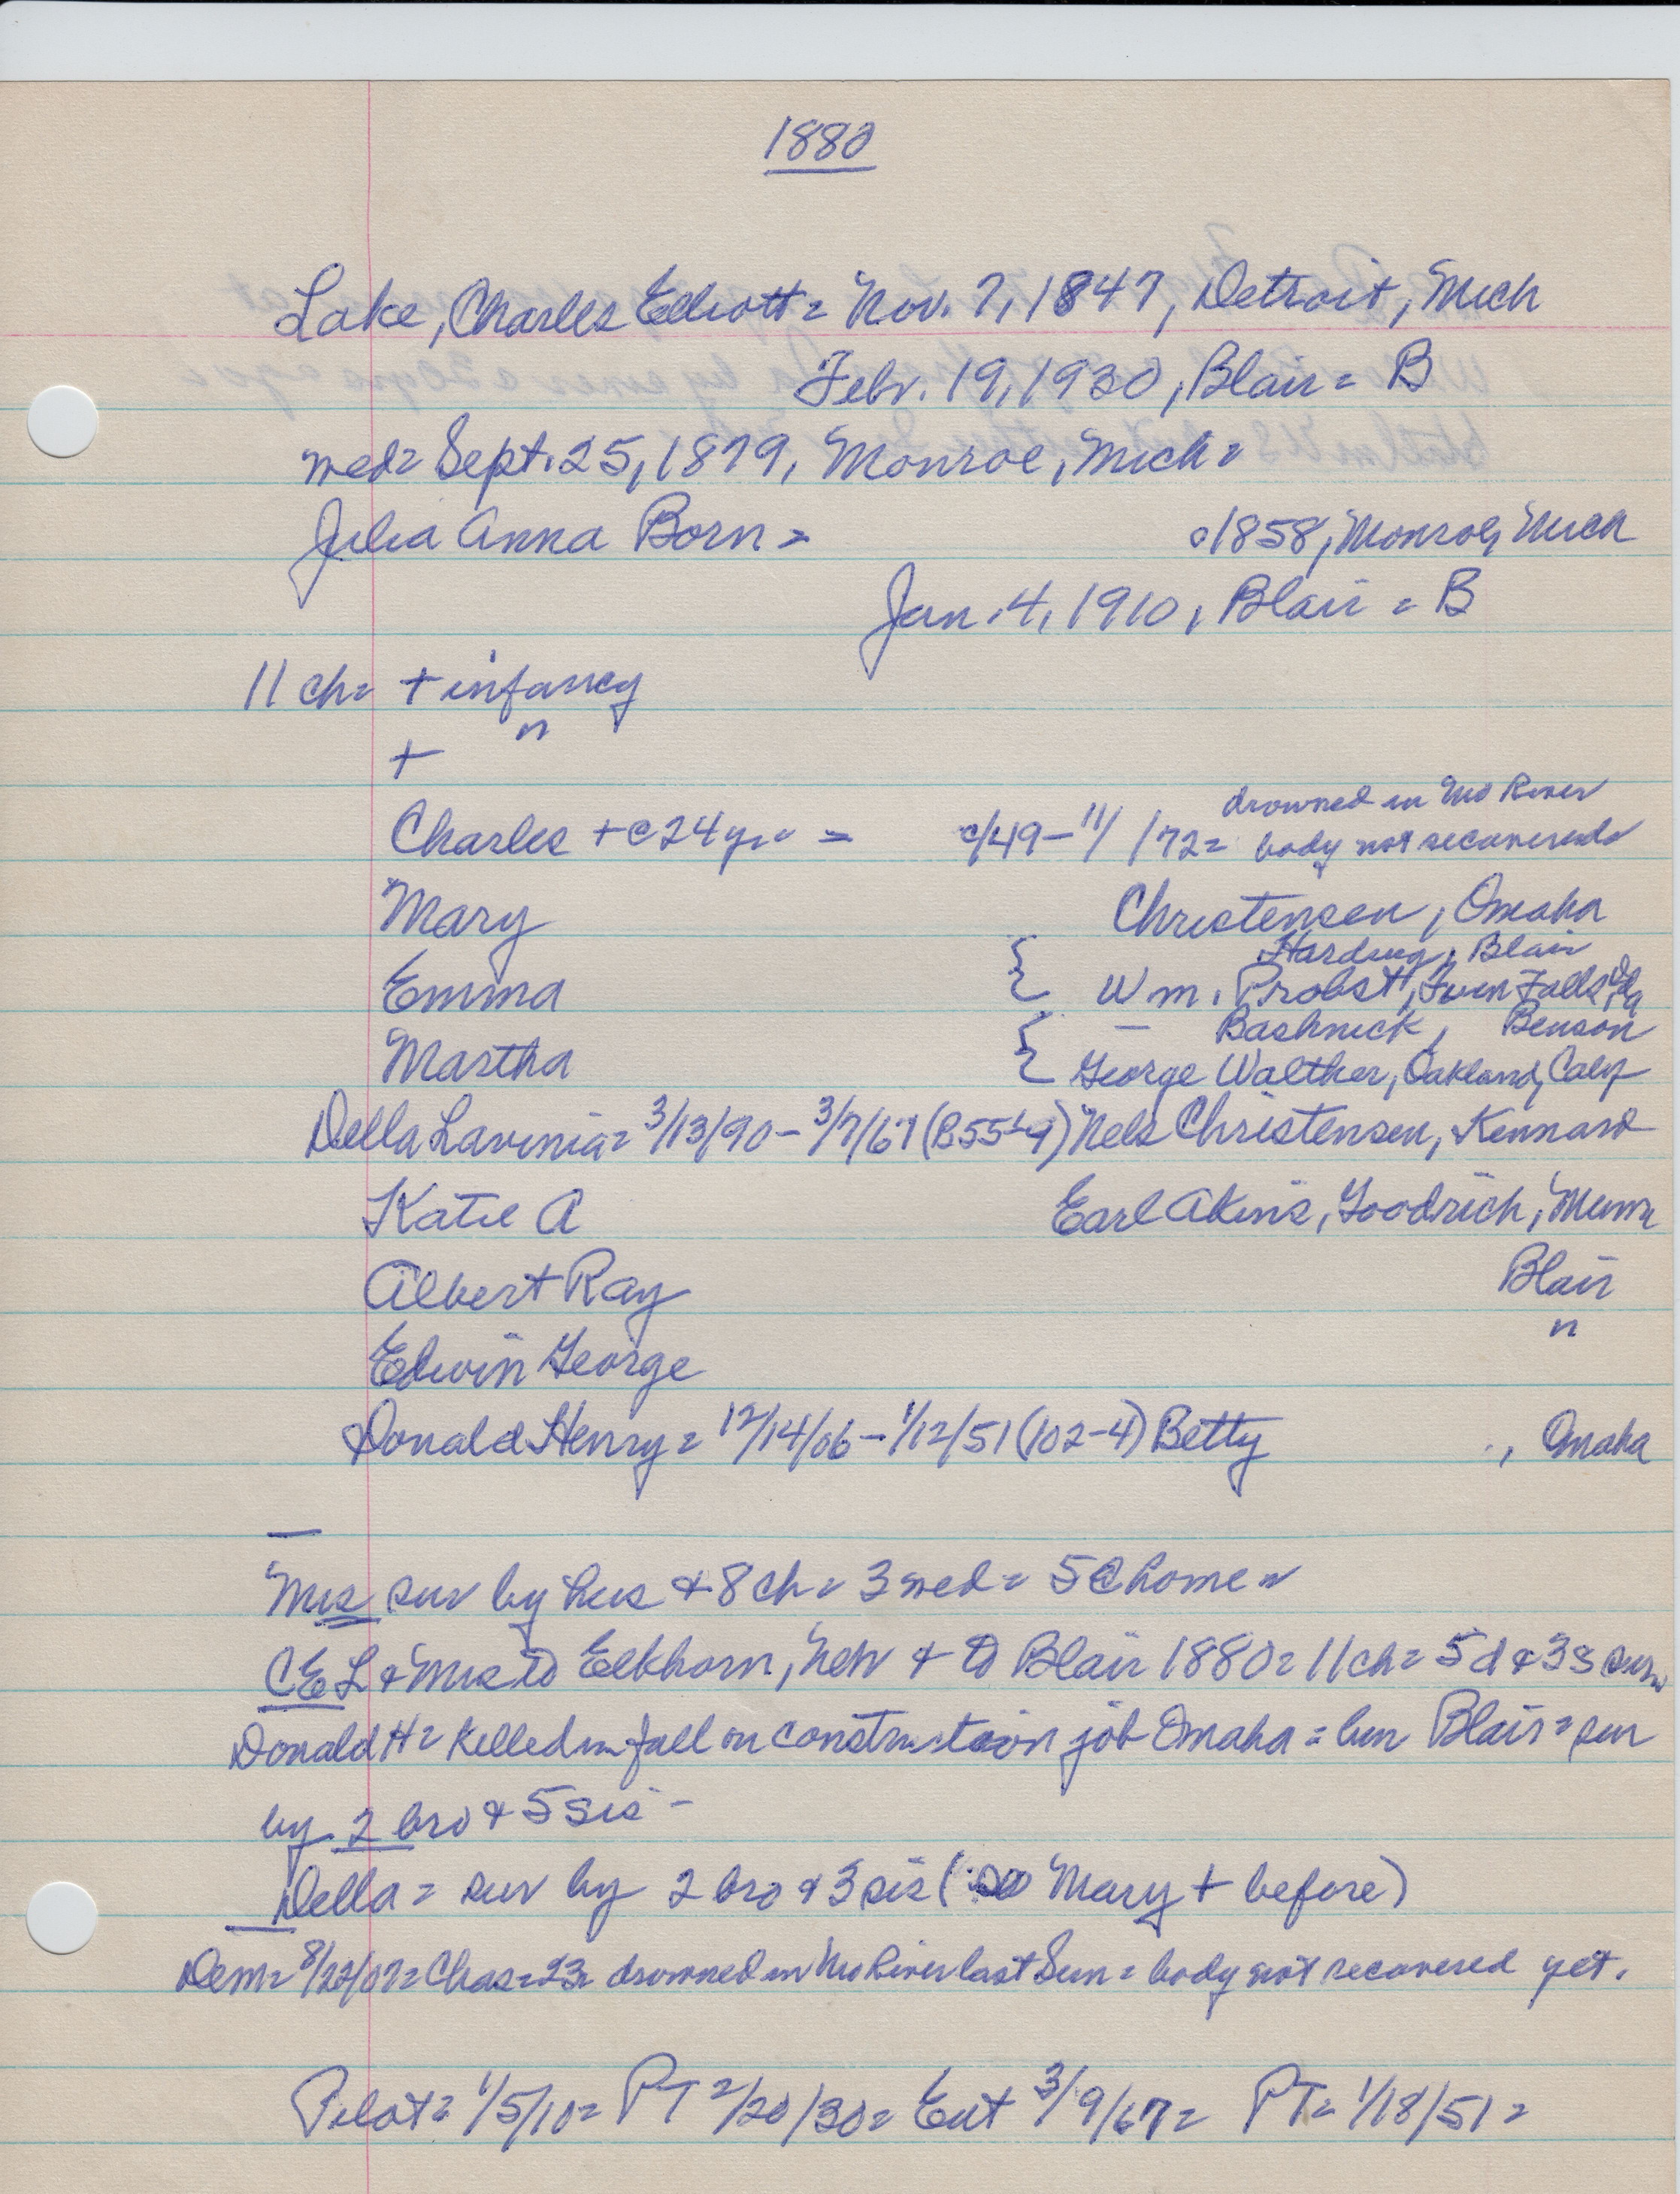 1880
Lake, Charles Elliott = Nov. 7, 1847, Detroit, Mich
Febr. 19, 1930, Blair = B
med = Sept. 25, 1879, Monroe, Mich =
Julia Anna Born = c1858, Monroe, Mich
Jan. 4, 1910, Blair = B
11 ch = + infancy
+ "
drowned in Mo River
Charles + c 24 yrs = c/49 – 11/ /72 = body not recovered
Mary Christensen, Omaha
Harding, Blair
Emma { Wm. Probst, Twin Falls, Ida
— Bashnick, Benson
Martha { George Walther, Oakland, Calif
Della Lavinia = 3/13/90 – 3/7/67 (B55L9) Nels Christensen, Kennard
Katie A Earl Akins, Goodrich, Minn
Albert Ray Blair
Edwin George "
Donald Henry = 12/14/06 – 1/12/51 (102-4) Betty , Omaha
—
Mrs sur by hus & 8 ch = 3 med = 5 @ home =
CEL & Mrs to Elkhorn, Neb & to Blair 1880 = 11 ch = 5 d & 3 s sur
Donald H = Killed in fall on construction job Omaha = bur Blair = sur
by 2 bro & 5 sis –
Della = sur by 2 bro & 3 sis ( so Mary + before)
Dem = 8/22/07 = Chas = 23 = drowned in Mo River last Sun = body not recovered yet.
Pilot = 1/5/10 = PT 2/20/30 = Ent 3/9/67 = PT = 1/18/51 =